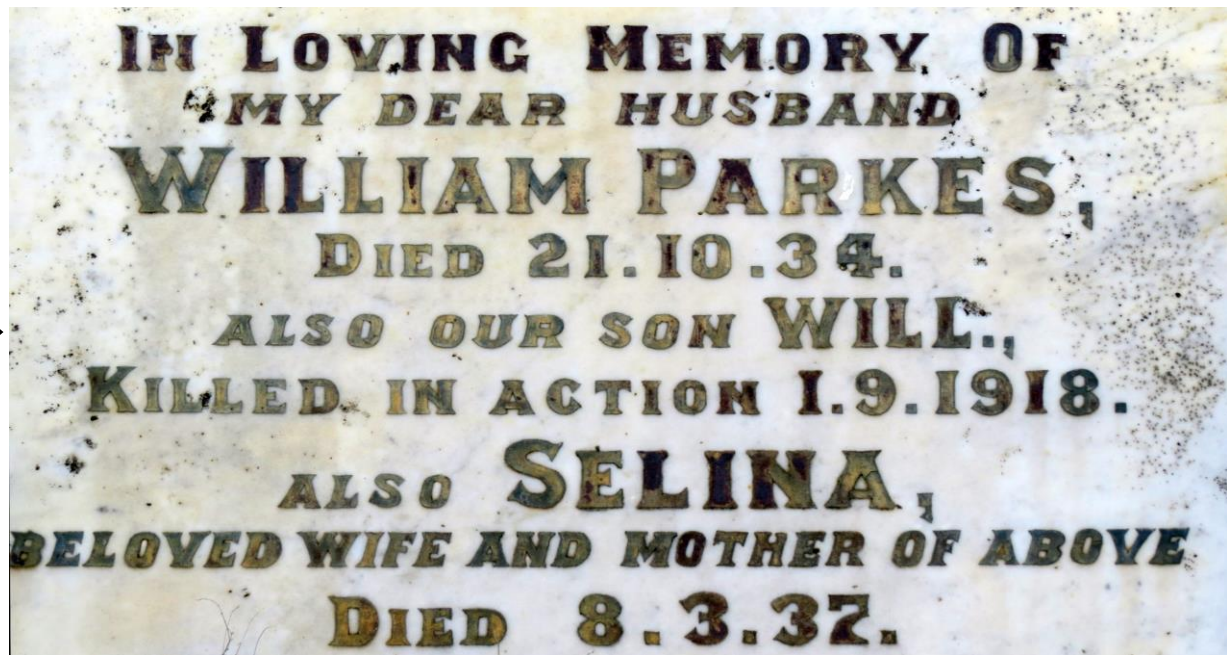 In Loving Memory Of
MY DEAR HUSBAND
WILLIAM PARKES,
DIED 21.10.34.
ALSO OUR SON WILL.,
KILLED IN ACTION 1.9.1918.
ALSO SELINA,
BELOVED WIFE AND MOTHER OF ABOVE
DIED 8.3.37.